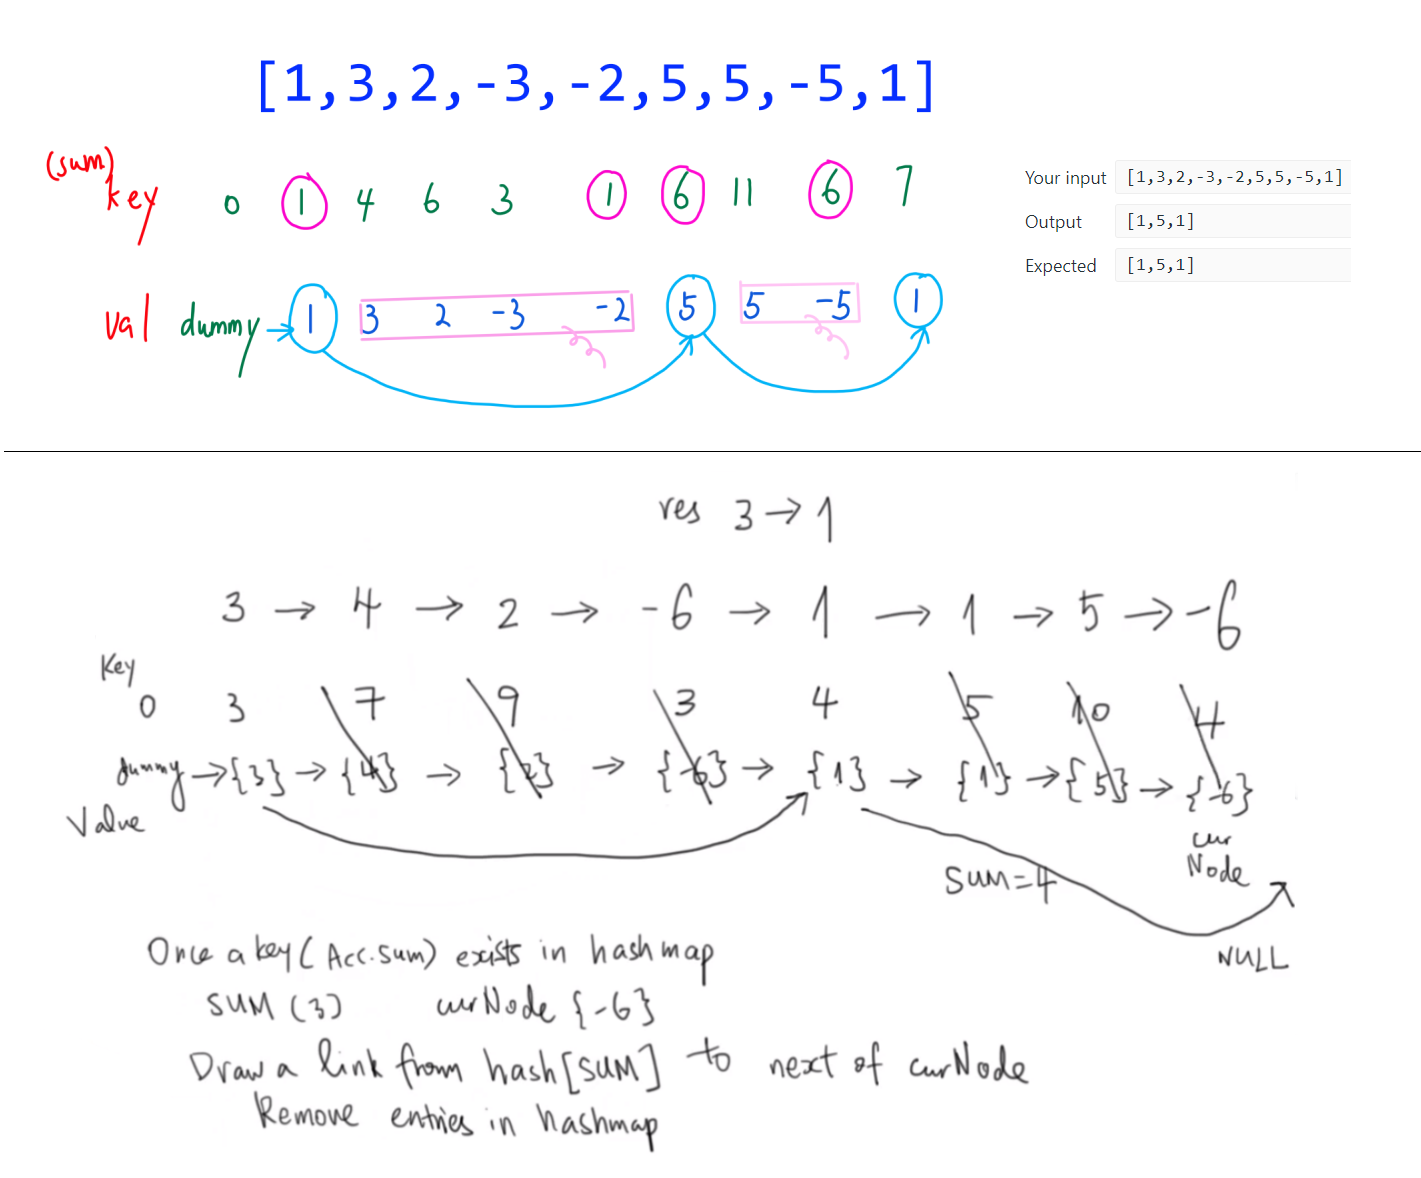 [1,3,2,-3,-2,5,5,-5,1]
(sum)
key 0 1 4 6 3 1 6 11 6 7
Your input [1,3,2,-3,-2,5,5,-5,1]
Output [1,5,1]
Expected [1,5,1]
val dummy → 1 3 2 -3 -2 5 5 -5 1
res 3 → 1
3 → 4 → 2 → -6 → 1 → 1 → 5 → -6
Key
0 3 7 9 3 4 5 10 4
dummy → {3} → {4} → {2} → {-6} → {1} → {1} → {5} → {-6}
Value
cur
Node
SUM=4
NULL
Once a key (Acc.sum) exists in hashmap
SUM (3) curNode {-6}
Draw a link from hash[SUM] to next of curNode
Remove entries in hashmap